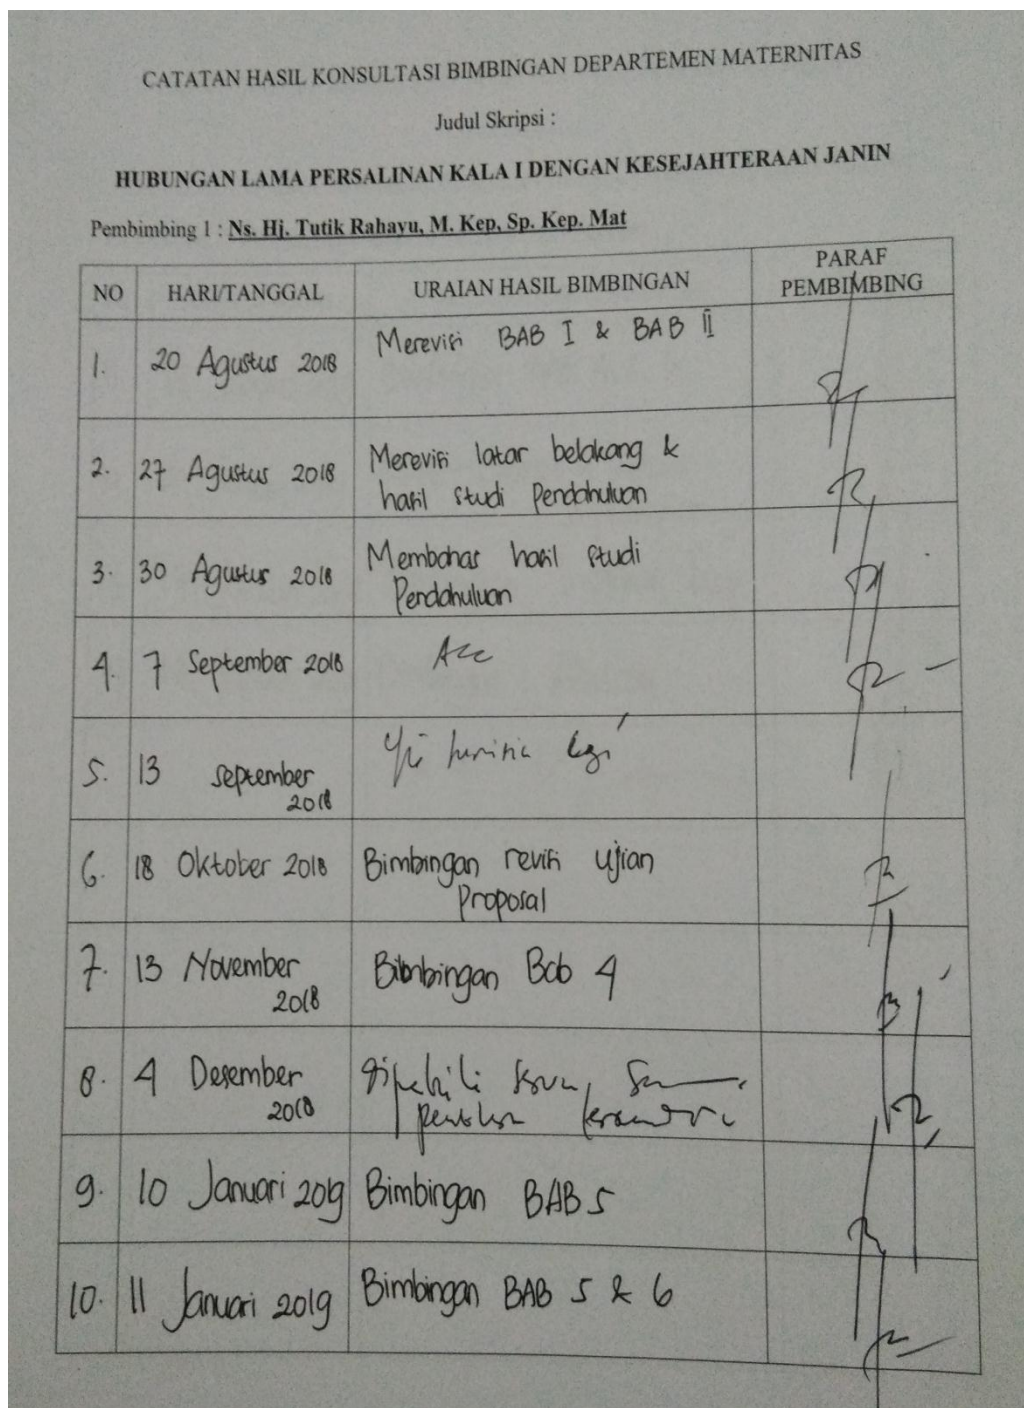 CATATAN HASIL KONSULTASI BIMBINGAN DEPARTEMEN MATERNITAS
Judul Skripsi :
HUBUNGAN LAMA PERSALINAN KALA I DENGAN KESEJAHTERAAN JANIN
Pembimbing 1 : Ns. Hj. Tutik Rahayu, M. Kep, Sp. Kep. Mat
NO HARI/TANGGAL URAIAN HASIL BIMBINGAN PARAF PEMBIMBING
1. 20 Agustus 2018 Merevisi BAB I & BAB II
2. 27 Agustus 2018 Merevisi latar belakang &
hasil studi Pendahuluan
3. 30 Agustus 2018 Membahas hasil studi
Pendahuluan
4. 7 September 2018 Acc
5. 13 September
2018
6. 18 Oktober 2018 Bimbingan revisi ujian
Proposal
7. 13 November Bimbingan Bab 4
2018
8. 4 Desember
2018
9. 10 Januari 2019 Bimbingan BAB 5
10. 11 Januari 2019 Bimbingan BAB 5 & 6